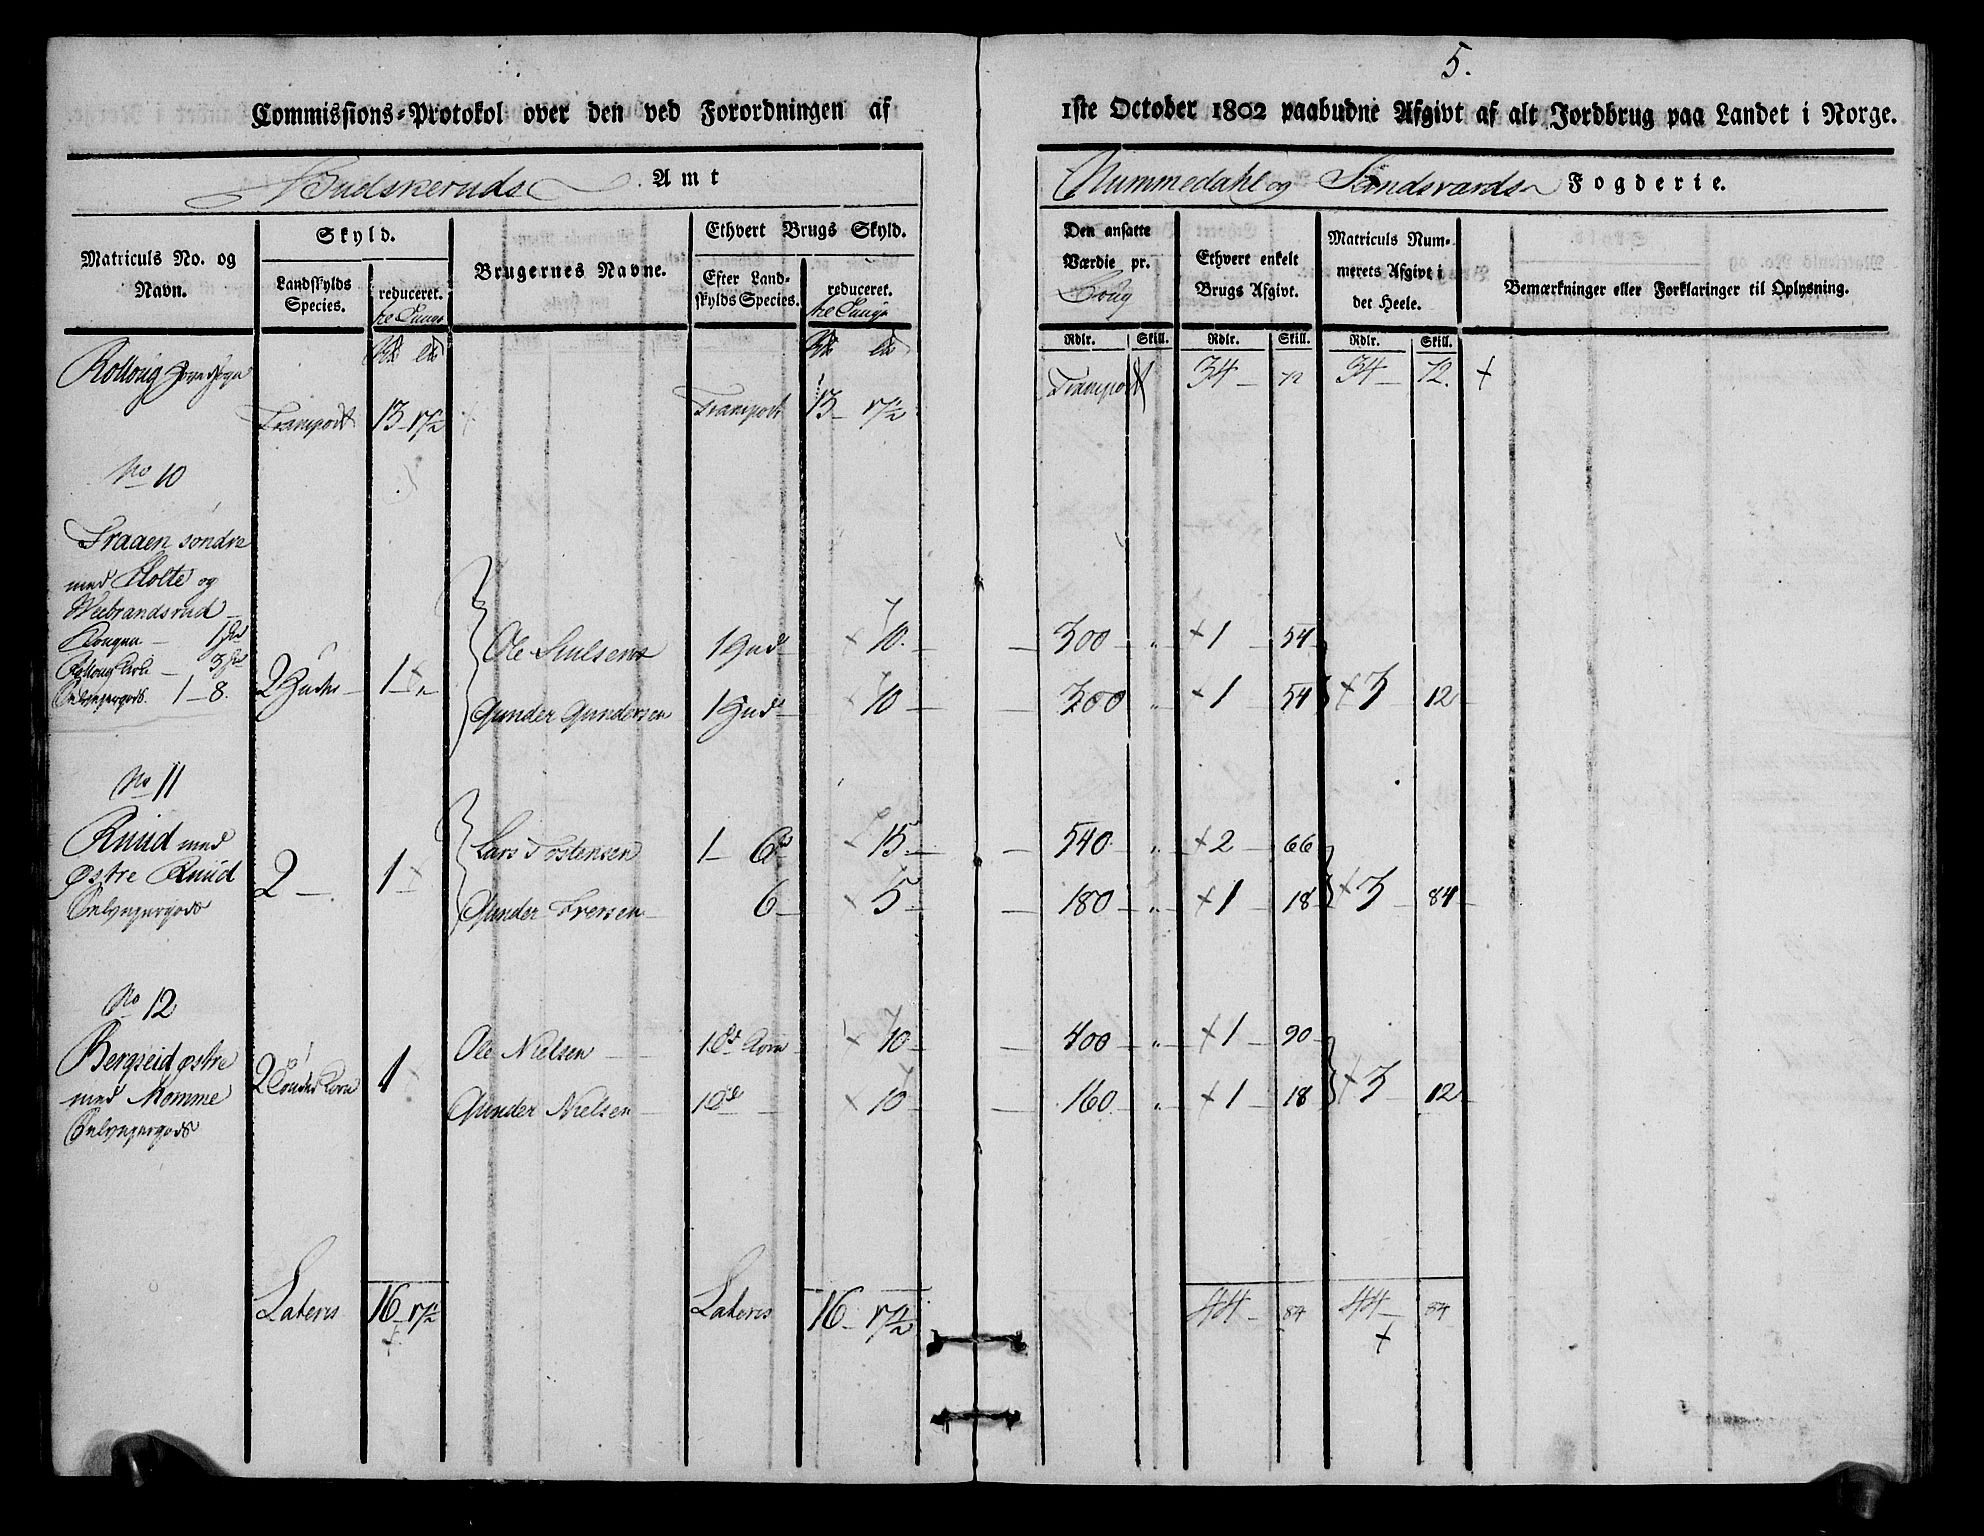 5.
Commissions-Protokol over den ved Forordningen af 1ste October 1802 paabudne Afgivt af alt Jordbrug paa Landet i Norge.
Budskeruds Amt
Nummedahl og Sandsværds Fogderie.
Matriculs No. og Navn.
Skyld.
Landskylds Species.
reduceret.
Brugernes Navne.
Ethvert Brugs Skyld.
Efter Landskylds Species.
reduceret.
Den ansatte Værdie pr.
Ethvert enkelt Brugs Afgivt.
Matriculs Nummerets Afgivt i det Heele.
Bemærkninger eller Forklaringer til Oplysning.
Rdlr. Skill. Rdlr. Skill. Rdlr. Skill.
Rolloug
Transport 13 - 17½ Transport 13 - 17½ Transport 34 - 72 34 - 72.
No 10
Traaen søndre
med Holte og
Weebrandsrud
2 Huder 1
Ole 1 Hud 10 300 1 54
Gunder Gundersen 1 Hud 10 300 1 54 3 12
No 11
Ruud med
østre Ruud
2 1
Lars Tostensen 1 - 6 15 540 2 66
Gunder Iversen 6 5 180 1 18 3 84
No 12
Bergseid østre
med Momme
2 Tønder Korn 1
Ole Nielsen 1 Korn 10 400 1 90
Gunder Nielsen 1 10 160 1 18 3 12
Lateris 16 - 17½ Lateris 16 - 17½ 44 - 84 44 - 84